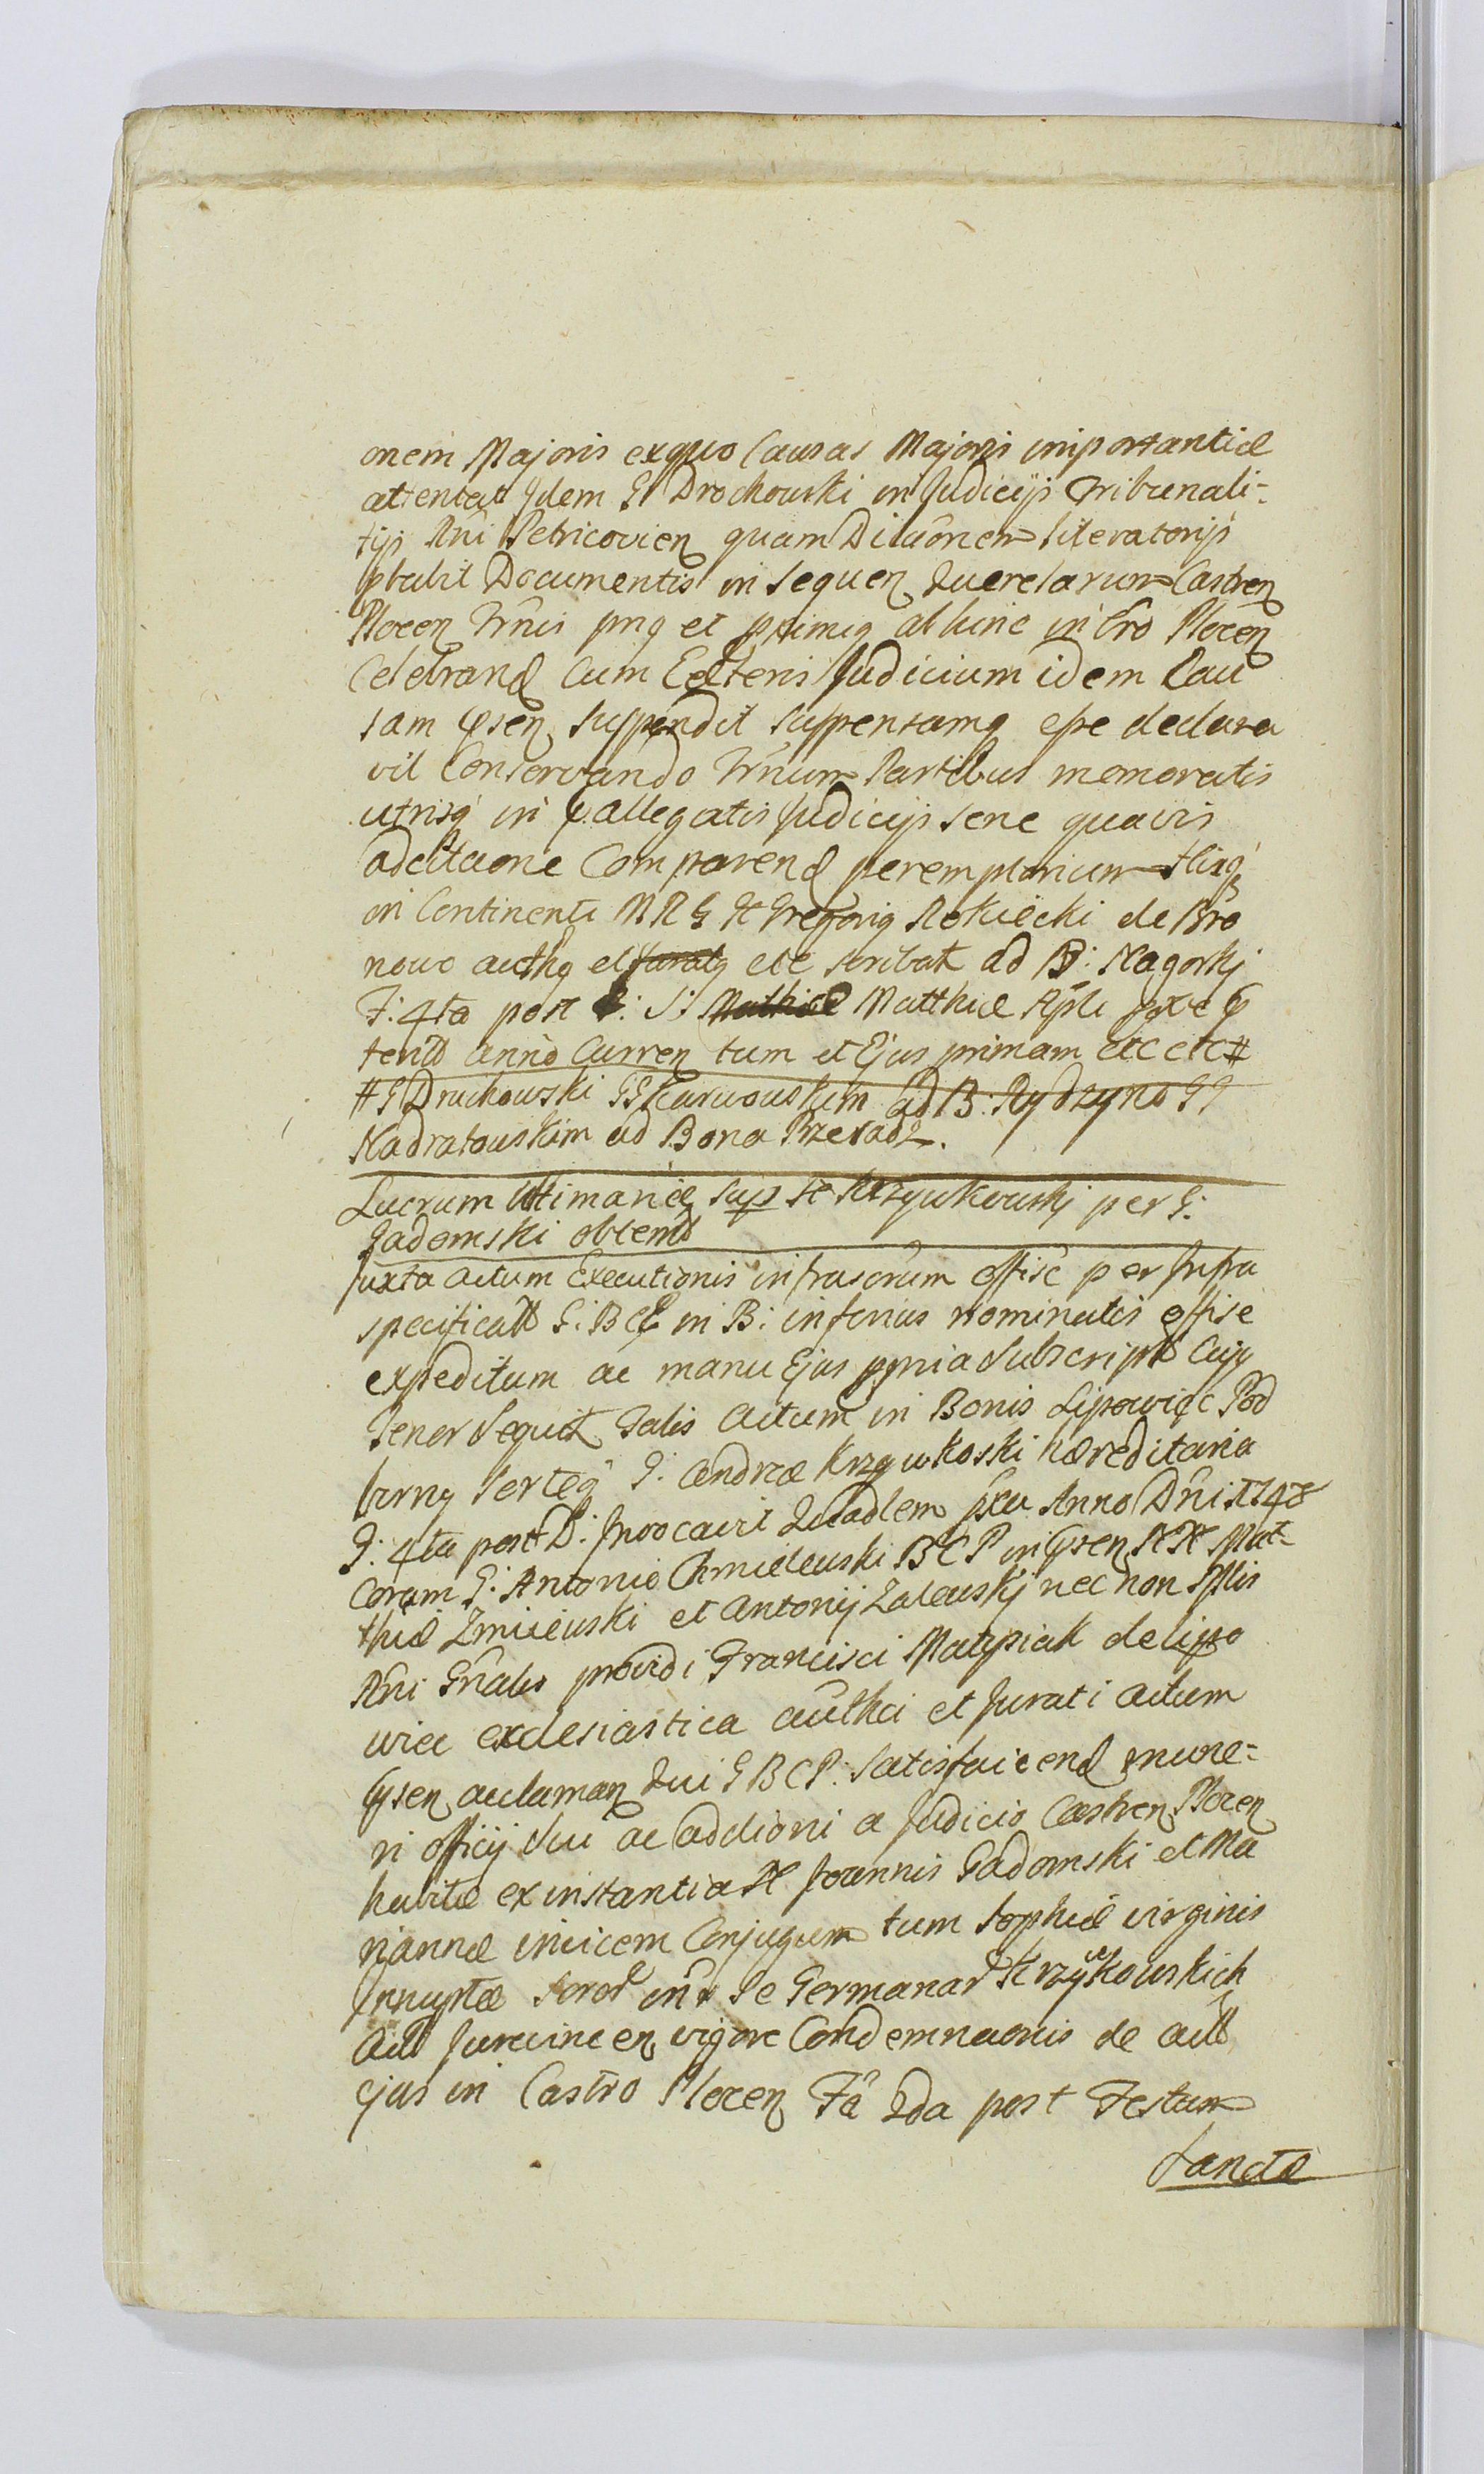 onem Majoris exquo Causas Majoris importantiæ
attentat Idem G Drochowski in Judicijs Tribunali=
tijs Rni Petricovien quam Dilaõnem literatorijs
pbabit Documentis in sequen Querelarum Castren
Plocen Trnis pnq et primiq abhinc in Cro Plocen
Celebrand Cum Cæteris Judicium idem Cau
sam psen suspendit suspensamq esse declara
vit Conservando Trnum Partibus memoratis
utrisq in allegatis Judicijs sene quavis
adcitaone Comparend peremptorium
in Continenti M R G Gregoriq Rokiecki de Bro
nowo authq et juratq etc scribat ad B: Nagorki
F: 4ta post S: Mathiæ Matthiæ Apli
terit anno Curren tum et Ejus primam etc etc #
# G Druchowski GG Karwowskim ad B: Rydzyno GG
Nadratowskim ad Bona Przeradz.
Lucrum Ultimariæ sup se Krzywkowskj per G:
Gadomski obtent
Juxta actum Executionis infrascrum offise per Infra
specificatt G: B C P in B: inferius nominatis offise
expeditum ac manu Ejus ppria Subscript Cujq
Tenor Sequit Talis Actum in Bonis Lipowiec Pod
burny G: Andreæ Krzywkoski hæreditaria
F: 4ta post D: Invocavit Quadlem pxa Anno Dni 1748
Coram G: Antonio Chmielewski B C P in psen Mat=
thiæ Zmiiewski et Antonij Zalewskj nec non Mlis
Rni Gnalis providi Francisci Matysiak de Lipo
wiec exclesiastica authci et Jurati actum
psen aclaman Qui G B C P: satisfaicend mune=
ri officij Sui ac addioni a Judicio Castren Plocen
habitæ ex instantia Joannis Gadomski et Ma
riannæ invicem Conjugum tum Sophiæ virginis
Innuptæ Soror inr se Germanar Krzywkowskich
Act Jurevincen vigore Condemnaonis de act
ejus in Castro Plocen Fa 2da post Festum
Sanctæ